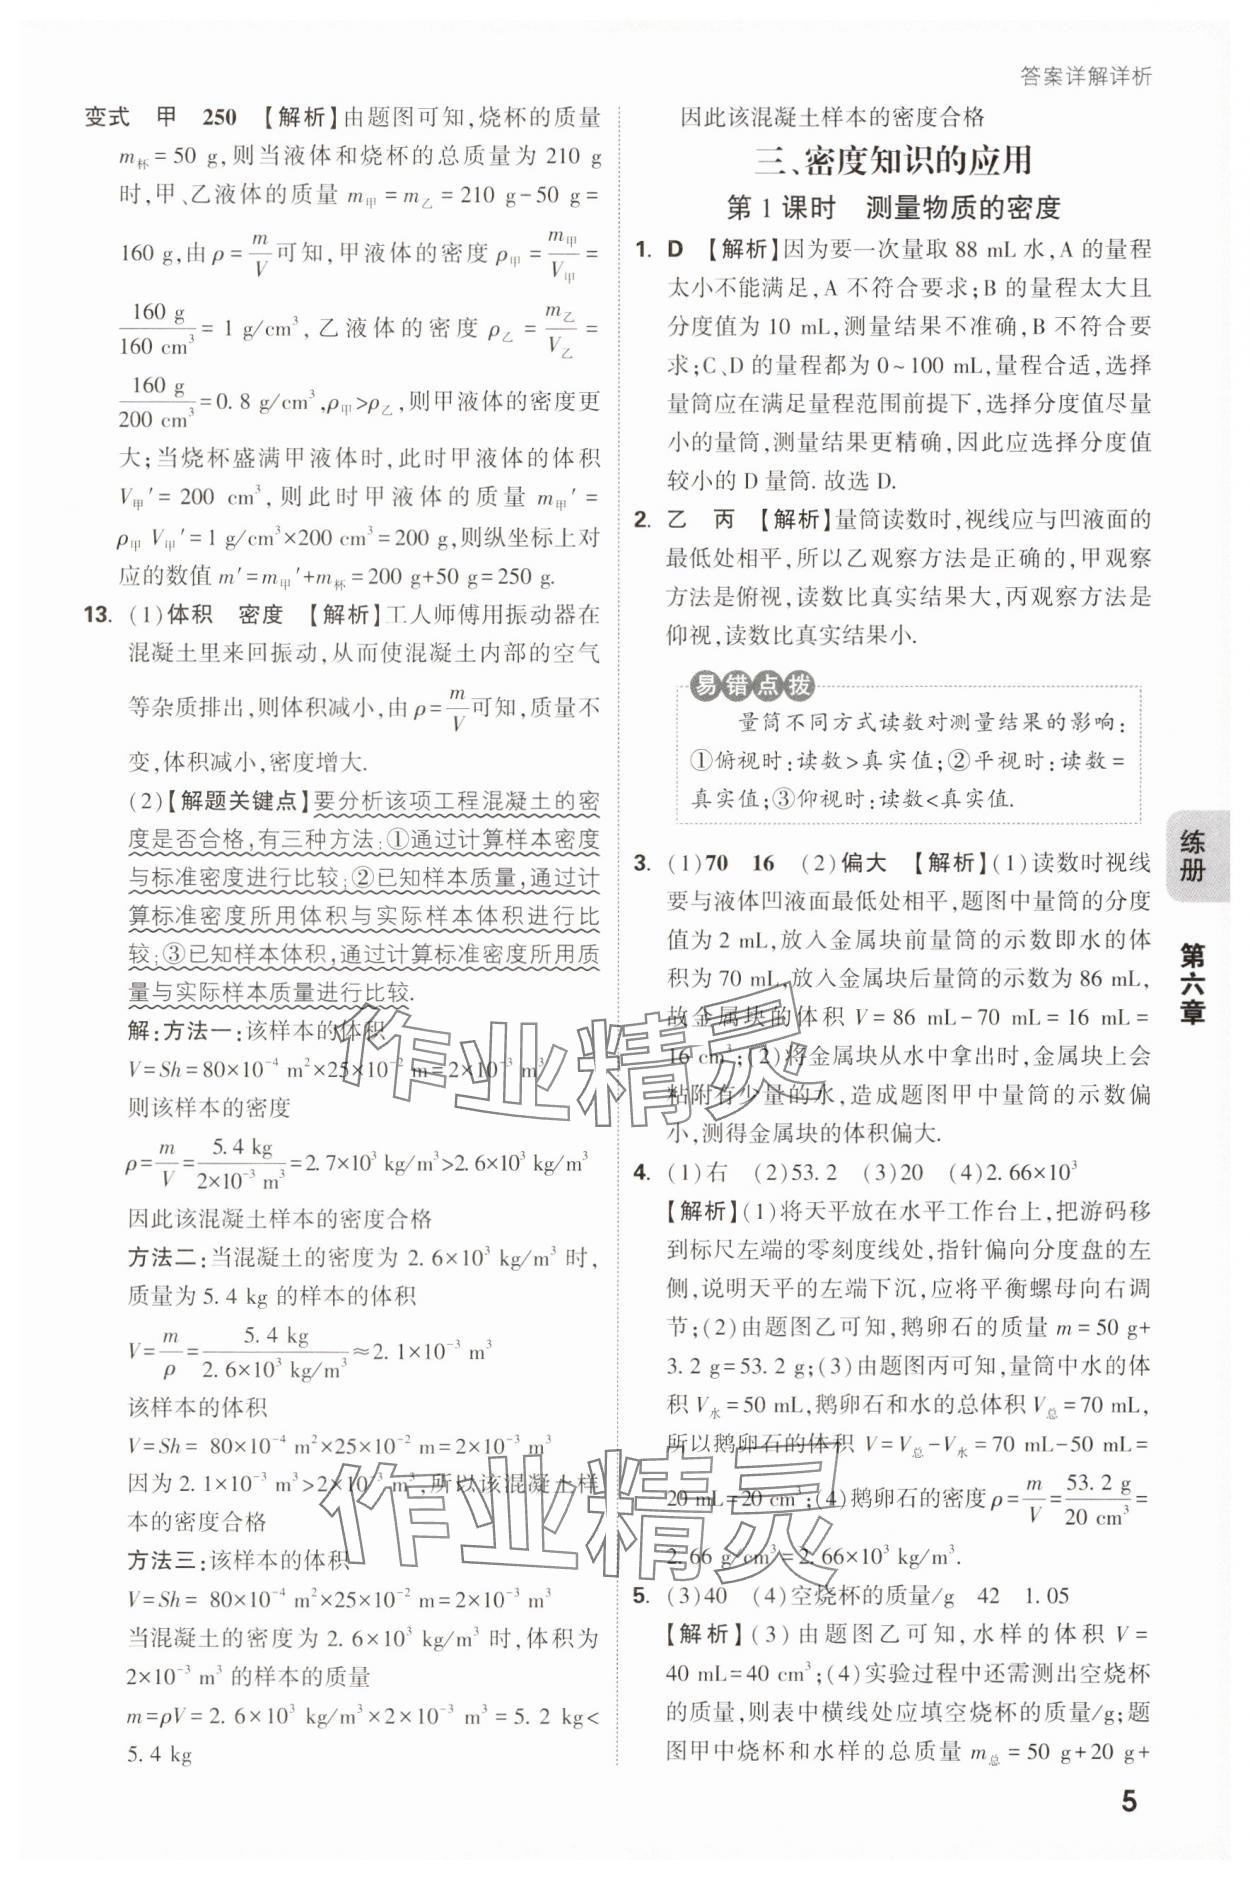 答案详解详析
变式　甲　250　【解析】由题图可知,烧杯的质量
m杯=50 g,则当液体和烧杯的总质量为 210 g
时,甲、乙液体的质量 m甲=m乙=210 g-50 g=
160 g,由 ρ=m/V可知,甲液体的密度 ρ甲=m甲/V甲=
160 g/160 cm³=1 g/cm³,乙液体的密度 ρ乙=m乙/V乙=
160 g/200 cm³=0. 8 g/cm³,ρ甲>ρ乙,则甲液体的密度更
大;当烧杯盛满甲液体时,此时甲液体的体积
V甲′=200 cm³,则此时甲液体的质量 m甲′=
ρ甲 V甲′=1 g/cm³×200 cm³=200 g,则纵坐标上对
应的数值 m′=m甲′+m杯=200 g+50 g=250 g.
13. (1)体积　密度　【解析】工人师傅用振动器在
混凝土里来回振动,从而使混凝土内部的空气
等杂质排出,则体积减小,由 ρ=m/V可知,质量不
变,体积减小,密度增大.
(2)【解题关键点】要分析该项工程混凝土的密
度是否合格,有三种方法:①通过计算样本密度
与标准密度进行比较;②已知样本质量,通过计
算标准密度所用体积与实际样本体积进行比
较;③已知样本体积,通过计算标准密度所用质
量与实际样本质量进行比较.
解:方法一:该样本的体积
V=Sh=80×10⁻⁴ m²×25×10⁻² m=2×10⁻³ m³
则该样本的密度
ρ=m/V=5. 4 kg/2×10⁻³ m³=2. 7×10³ kg/m³>2. 6×10³ kg/m³
因此该混凝土样本的密度合格
方法二:当混凝土的密度为 2. 6×10³ kg/m³ 时,
质量为 5. 4 kg 的样本的体积
V=m/ρ=5. 4 kg/2. 6×10³ kg/m³≈2. 1×10⁻³ m³
该样本的体积
V=Sh= 80×10⁻⁴ m²×25×10⁻² m=2×10⁻³ m³
因为 2. 1×10⁻³ m³>2×10⁻³ m³,所以该混凝土样
本的密度合格
方法三:该样本的体积
V=Sh= 80×10⁻⁴ m²×25×10⁻² m=2×10⁻³ m³
当混凝土的密度为 2. 6×10³ kg/m³ 时,体积为
2×10⁻³ m³ 的样本的质量
m=ρV=2. 6×10³ kg/m³×2×10⁻³ m³=5. 2 kg<
5. 4 kg
因此该混凝土样本的密度合格
三、密度知识的应用
第 1 课时　测量物质的密度
1. D　【解析】因为要一次量取 88 mL 水,A 的量程
太小不能满足,A 不符合要求;B 的量程太大且
分度值为 10 mL,测量结果不准确,B 不符合要
求;C、D 的量程都为 0~100 mL,量程合适,选择
量筒应在满足量程范围前提下,选择分度值尽量
小的量筒,测量结果更精确,因此应选择分度值
较小的 D 量筒. 故选 D.
2. 乙　丙　【解析】量筒读数时,视线应与凹液面的
最低处相平,所以乙观察方法是正确的,甲观察
方法是俯视,读数比真实结果大,丙观察方法是
仰视,读数比真实结果小.
易错点拨
量筒不同方式读数对测量结果的影响:
①俯视时:读数>真实值;②平视时:读数=
真实值;③仰视时:读数<真实值.
3. (1)70　16　(2)偏大　【解析】(1)读数时视线
要与液体凹液面最低处相平,题图中量筒的分度
值为 2 mL,放入金属块前量筒的示数即水的体
积为 70 mL,放入金属块后量筒的示数为 86 mL,
故金属块的体积 V=86 mL-70 mL=16 mL=
16 cm³;(2)将金属块从水中拿出时,金属块上会
粘附有少量的水,造成题图甲中量筒的示数偏
小,测得金属块的体积偏大.
4. (1)右　(2)53. 2　(3)20　(4)2. 66×10³
【解析】(1)将天平放在水平工作台上,把游码移
到标尺左端的零刻度线处,指针偏向分度盘的左
侧,说明天平的左端下沉,应将平衡螺母向右调
节;(2)由题图乙可知,鹅卵石的质量 m=50 g+
3. 2 g=53. 2 g;(3)由题图丙可知,量筒中水的体
积 V水=50 mL,鹅卵石和水的总体积 V总=70 mL,
所以鹅卵石的体积 V=V总-V水=70 mL-50 mL=
20 mL=20 cm³;(4)鹅卵石的密度 ρ=m/V=53. 2 g/20 cm³=
2. 66 g/cm³=2. 66×10³ kg/m³.
5. (3)40　(4)空烧杯的质量/g　42　1. 05
【解析】(3)由题图乙可知,水样的体积 V=
40 mL=40 cm³;(4)实验过程中还需测出空烧杯
的质量,则表中横线处应填空烧杯的质量/g;题
图甲中烧杯和水样的总质量 m总=50 g+20 g+
练册
第六章
5
作业精灵
作业精灵